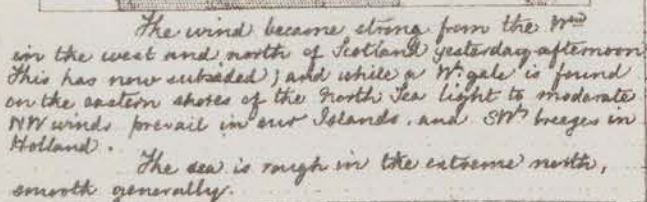 The wind became strong from the Wwd
in the west and north of Scotland yesterday afternoon
This has now subsided; and while a W. gale is found
on the eastern shores of the North Sea light to moderate
NW winds prevail in our Islands, and SWly breezes in
Holland.
The sea is rough in the extreme north,
smooth generally.